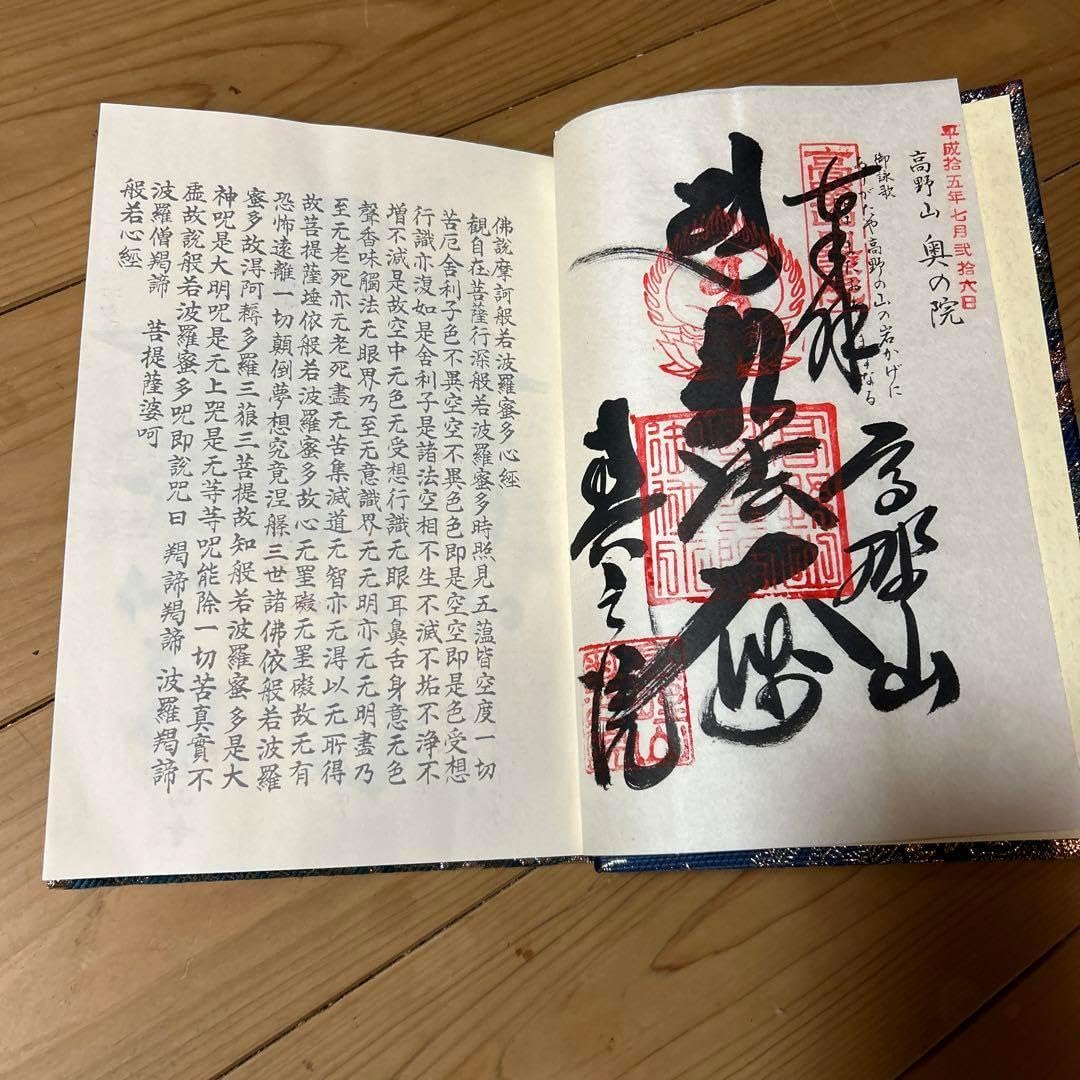 平成拾五年七月弐拾六日
高野山 奥の院
御詠歌
ありがたや高野の山の岩かげに
奉拝
高野山
弘法大師
奥之院
佛説摩訶般若波羅蜜多心經
観自在菩薩行深般若波羅蜜多時照見五薀皆空度一切
苦厄舍利子色不異空空不異色色即是空空即是色受想
行識亦復如是舍利子是諸法空相不生不滅不垢不浄不
増不減是故空中无色无受想行識无眼耳鼻舌身意无色
聲香味觸法无眼界乃至无意識界无无明亦无无明盡乃
至无老死亦无老死盡无苦集滅道无智亦无得以无所得
故菩提薩埵依般若波羅蜜多故心无罣礙无罣礙故无有
恐怖遠離一切顛倒夢想究竟涅槃三世諸佛依般若波羅
蜜多故得阿耨多羅三藐三菩提故知般若波羅蜜多是大
神呪是大明呪是无上呪是无等等呪能除一切苦真實不
虚故説般若波羅蜜多呪即説呪曰 羯諦羯諦 波羅羯諦
波羅僧羯諦 菩提薩婆呵
般若心經